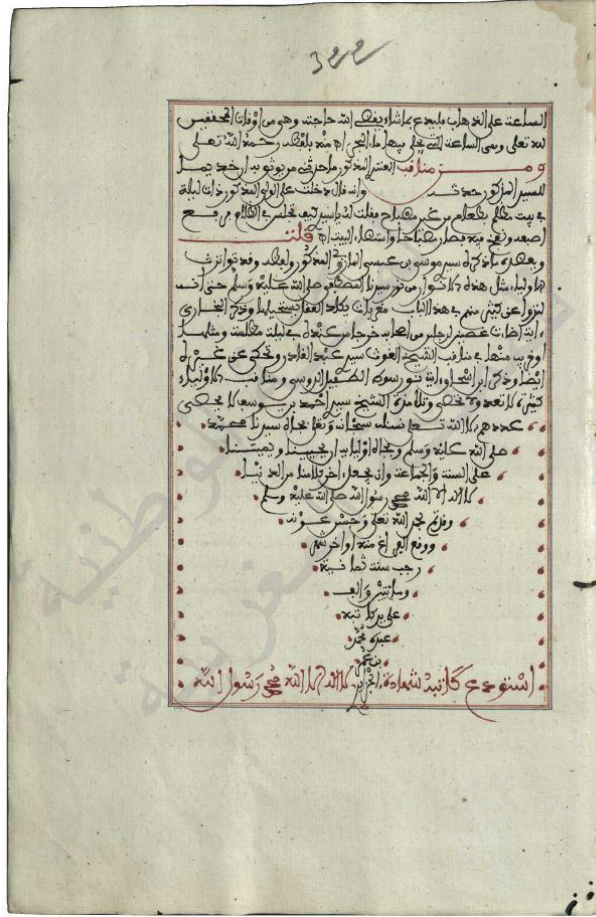 322
الساعة على الذهاب فليدع بما شاء يقضي الله حاجته وهي من اوقات المحققين
لله تعلى وهي الساعة التي تجلى فيها
ومن مناقب
للسيد المذكور حدثني وانه قال دخلت على الولي المذكور ذات ليلة
في بيت مظلم بطعام من غير مصباح فقلت له يا سيدي كيف تجلس في الظلام فرفع
اصبعه ونفخ فيه فصار مصباحا واشتعل البيت اه قلت
وبعضه ما ذكره سيدي موسى بن عيسى المازوني المذكور ولفظه وقد تواترت
الاولياء مثل هذه الانوار من نور سيدنا المصطفى صلى الله عليه وسلم حتى انه
في هذا الباب يكاد العقل يستحيلها وذكر البخاري
اية اضاءت عصى لرجلين من اصحابه خرجا من عنده في ليلة مظلمة ومثلها
او قريب منها في مناقب الشيخ الغوث سيدي عبد القادر وتحكى عن غيره
ايضا وذكر ابن اسحاق اية نور سوط الطفيل الدوسي ومناقب الاولياء
كثيرة لا تعد ولا تحصى وتلامذة الشيخ سيدي احمد بن يوسف لا يحصي
عددهم الا الله تعلى نسئله سبحانه وتعلى بجاه سيدنا محمد
صلى الله عليه وسلم وبجاه اوليائه ان يحيينا ويميتنا
على السنة والجماعة وان يجعل اخر كلامنا من الدنيا
لا اله الا الله محمد رسول الله صلى الله عليه وسلم
وقد تم بحمد الله تعلى وحسن عونه
ووقع الفراغ منه اواخر شهر
رجب سنة ثمانية
ومائتين والف
على يد كاتبه
عبده محمد
بن
استودع كاتبه شهادة لا اله الا الله محمد رسول الله